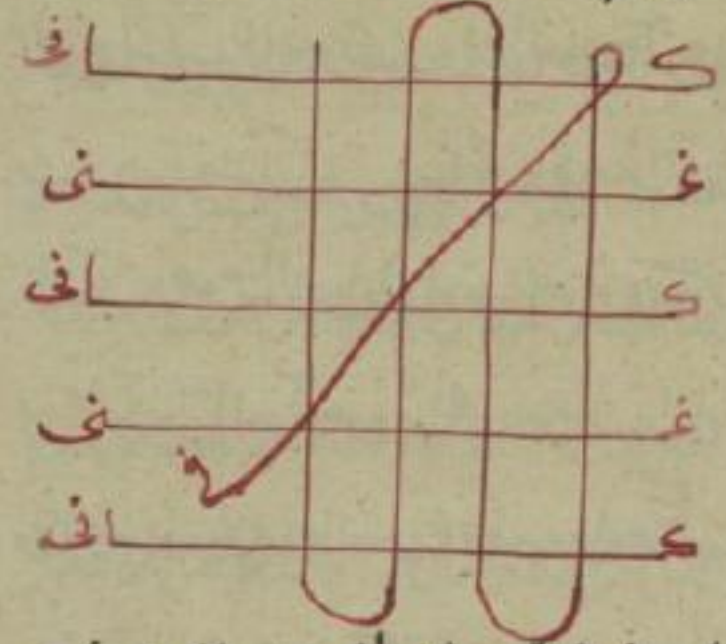 كافى
غنى
كافى
غنى
كافى